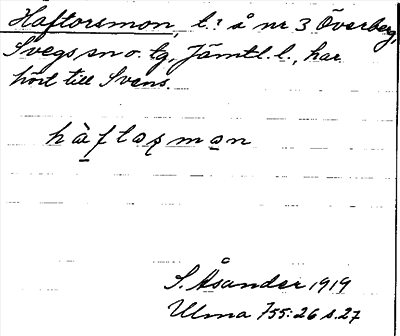 Haftorsmon, l.: å nr 3 Överberg,
Svegs sn o. tg, Jämtl. l., har
hört till Svens.
hàftoʂmon
S. Åsander 1919
Ulma 755:26 s.27